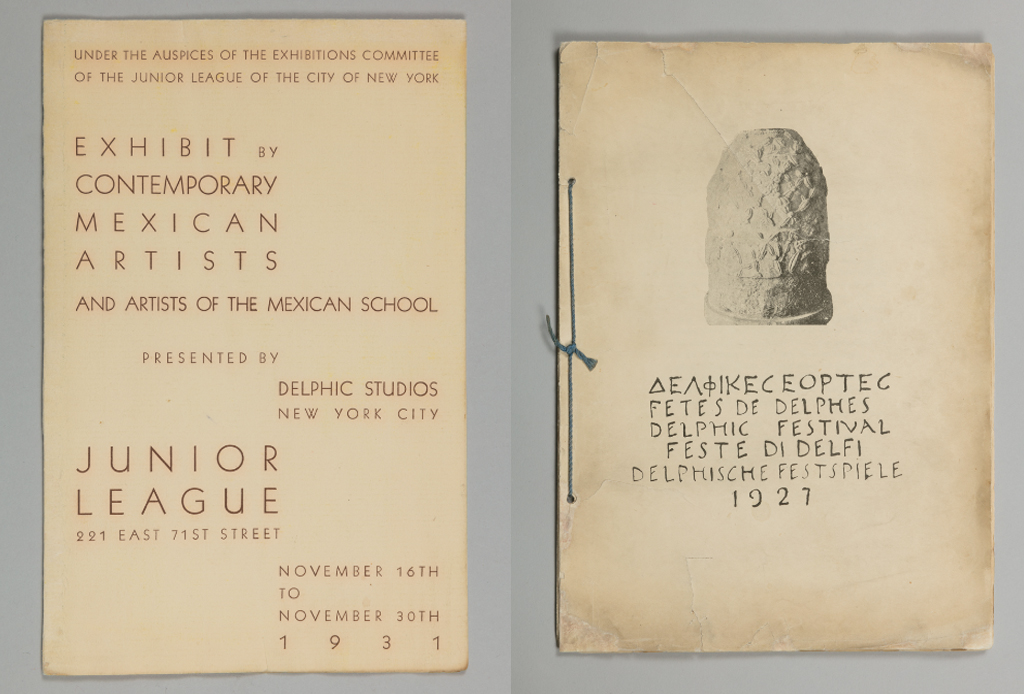 UNDER THE AUSPICES OF THE EXHIBITIONS COMMITTEE
OF THE JUNIOR LEAGUE OF THE CITY OF NEW YORK
EXHIBIT BY
CONTEMPORARY
MEXICAN
ARTISTS
AND ARTISTS OF THE MEXICAN SCHOOL
PRESENTED BY
DELPHIC STUDIOS
NEW YORK CITY
JUNIOR
LEAGUE
221 EAST 71ST STREET
NOVEMBER 16TH
TO
NOVEMBER 30TH
1931
ΔΕΛΦΙΚΕϹ ΕΟΡΤΕϹ
FETES DE DELPHES
DELPHIC FESTIVAL
FESTE DI DELFI
DELPHISCHE FESTSPIELE
1927